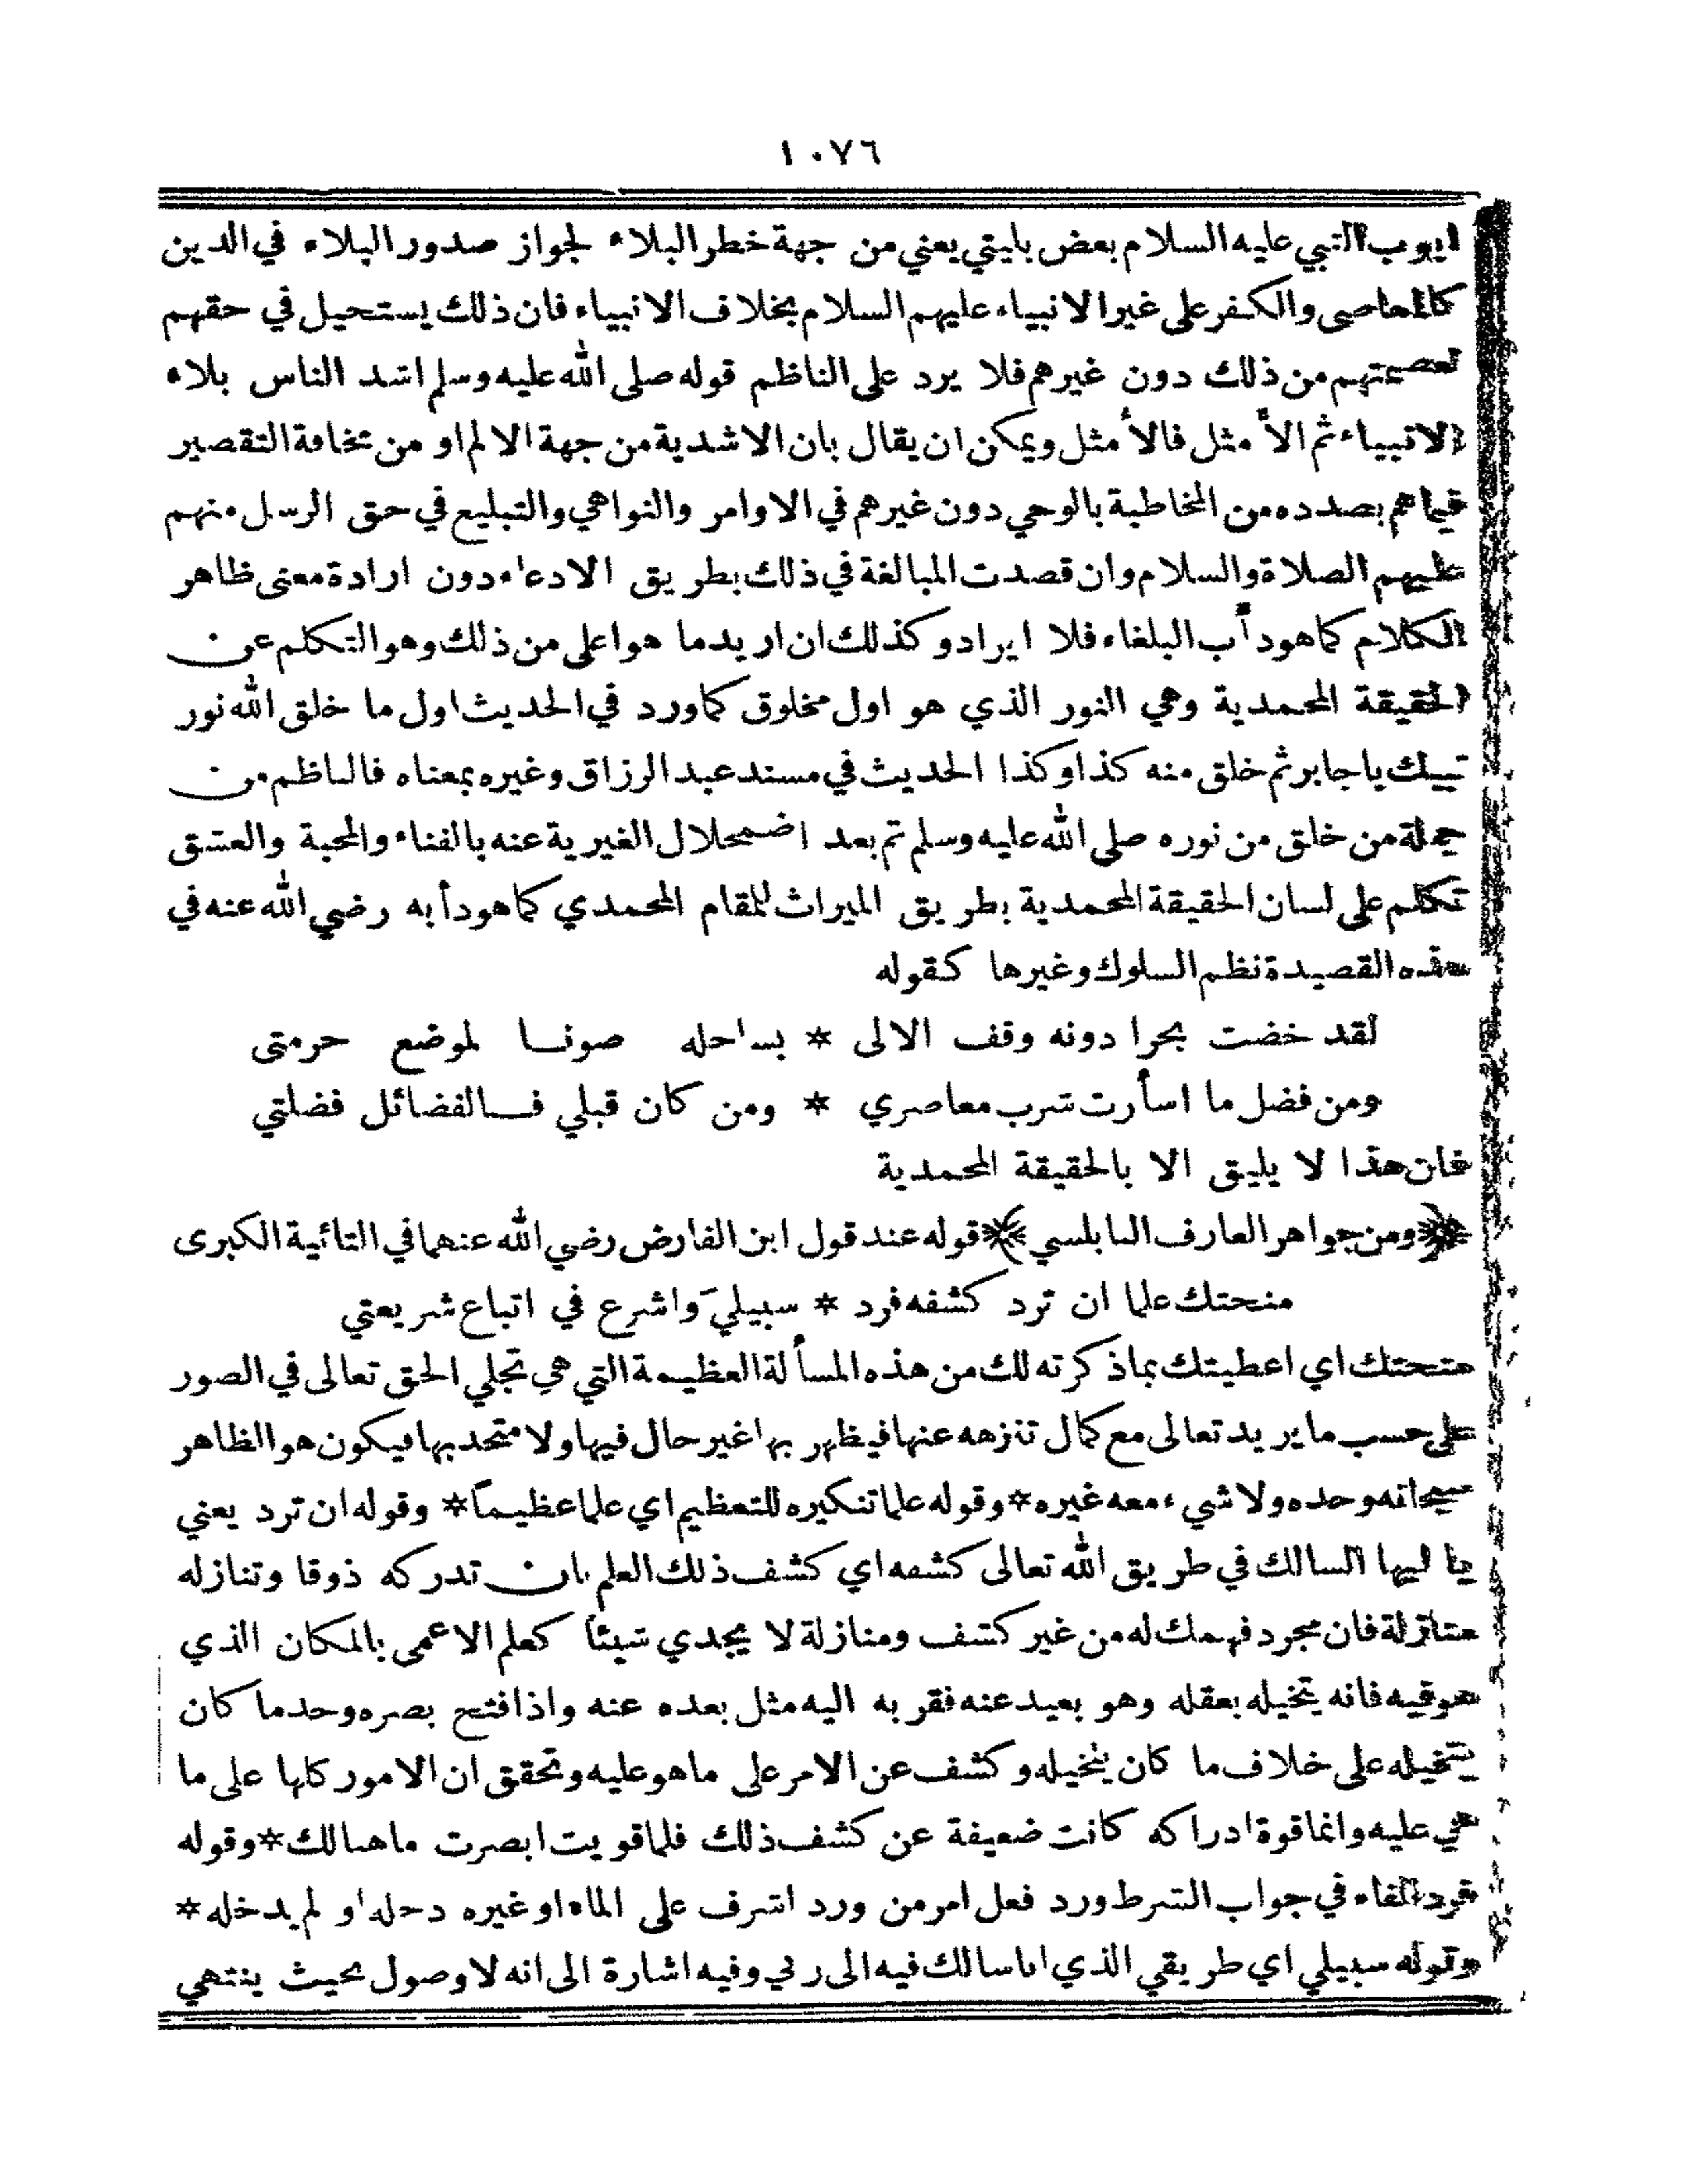 ١٠٧٦
ايوب النبي عليه السلام بعض بليتي يعني من جهة خطر البلاء لجواز صدور البلاء في الدين
كالمعاصي والكفر على غير الانبياء عليهم السلام بخلاف الانبياء فان ذلك يستحيل في حقهم
لعصمتهم من ذلك دون غيرهم فلا يرد على الناظم قوله صلى الله عليه وسلم اشد الناس بلاء
الانبياء ثم الأمثل فالأمثل ويمكن ان يقال بان الاشدية من جهة الالم او من مخافة التقصير
فيما هم بصدده من المخاطبة بالوحي دون غيرهم في الاوامر والنواهي والتبليغ في حق الرسل منهم
عليهم الصلاة والسلام وان قصدت المبالغة في ذلك بطريق الادعاء دون ارادة معنى ظاهر
الكلام كما هو دأب البلغاء فلا ايراد وكذلك ان اريد ما هو اعلى من ذلك وهو التكلم عن
الحقيقة المحمدية وهي النور الذي هو اول مخلوق كما ورد في الحديث اول ما خلق الله نور
نبيك يا جابر ثم خلق منه كذا وكذا الحديث في مسند عبد الرزاق وغيره بمعناه فالناظم من
جملة من خلق من نوره صلى الله عليه وسلم ثم بعد اضمحلال الغيرية عنه بالفناء والمحبة والعشق
تكلم على لسان الحقيقة المحمدية بطريق الميراث للمقام المحمدي كما هو دأبه رضي الله عنه في
هذه القصيدة نظم السلوك وغيرها كقوله
لقد خضت بحرا دونه وقف الالى * بساحله صونا لموضع حرمتى
ومن فضل ما اسأرت شرب معاصري * ومن كان قبلي فالفضائل فضلتي
فان هذا لا يليق الا بالحقيقة المحمدية
﴿ومن جواهر العارف النابلسي﴾ قوله عند قول ابن الفارض رضي الله عنهما في التائية الكبرى
منحتك علما ان ترد كشفه فرد * سبيلي واشرع في اتباع شريعتي
منحتك اي اعطيتك بما ذكرته لك من هذه المسألة العظيمة التي هي تجلي الحق تعالى في الصور
على حسب ما يريد تعالى مع كمال تنزهه عنها فيظهر بها غير حال فيها ولا متحد بها فيكون هو الظاهر
سبحانه وحده ولا شيء معه غيره * وقوله علما تنكيره للتعظيم اي علما عظيماً * وقوله ان ترد يعني
يا ايها السالك في طريق الله تعالى كشفه اي كشف ذلك العلم بان تدركه ذوقا وتنازله
منازلة فان مجرد فهمك له من غير كشف ومنازلة لا يجدي شيئاً كعلم الاعمى بالمكان الذي
هو فيه فانه يتخيله بعقله وهو بعيد عنه فقربه اليه مثل بعده عنه واذا فتح بصره وجد ما كان
يتخيله على خلاف ما كان يتخيله وكشف عن الامر على ما هو عليه وتحقق ان الامور كلها على ما
هي عليه وانما قوة ادراكه كانت ضعيفة عن كشف ذلك فلما قويت ابصرت ما هنالك * وقوله
فرد الفاء في جواب الشرط ورد فعل امر من ورد اشرف على الماء او غيره دخله او لم يدخله *
وقوله سبيلي اي طريقي الذي انا سالك فيه الى ربي وفيه اشارة الى انه لا وصول بحيث ينتهي